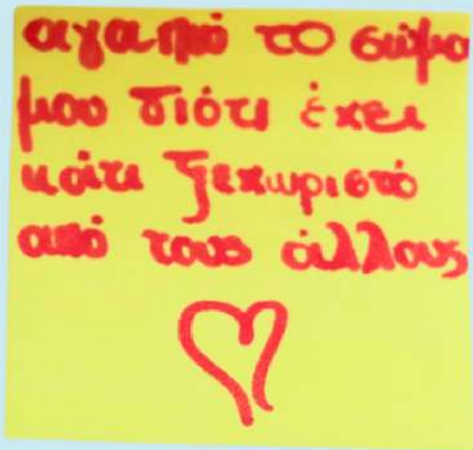 αγαπώ το σώμα
μου διότι έχει
κάτι ξεχωριστό
από τους άλλους